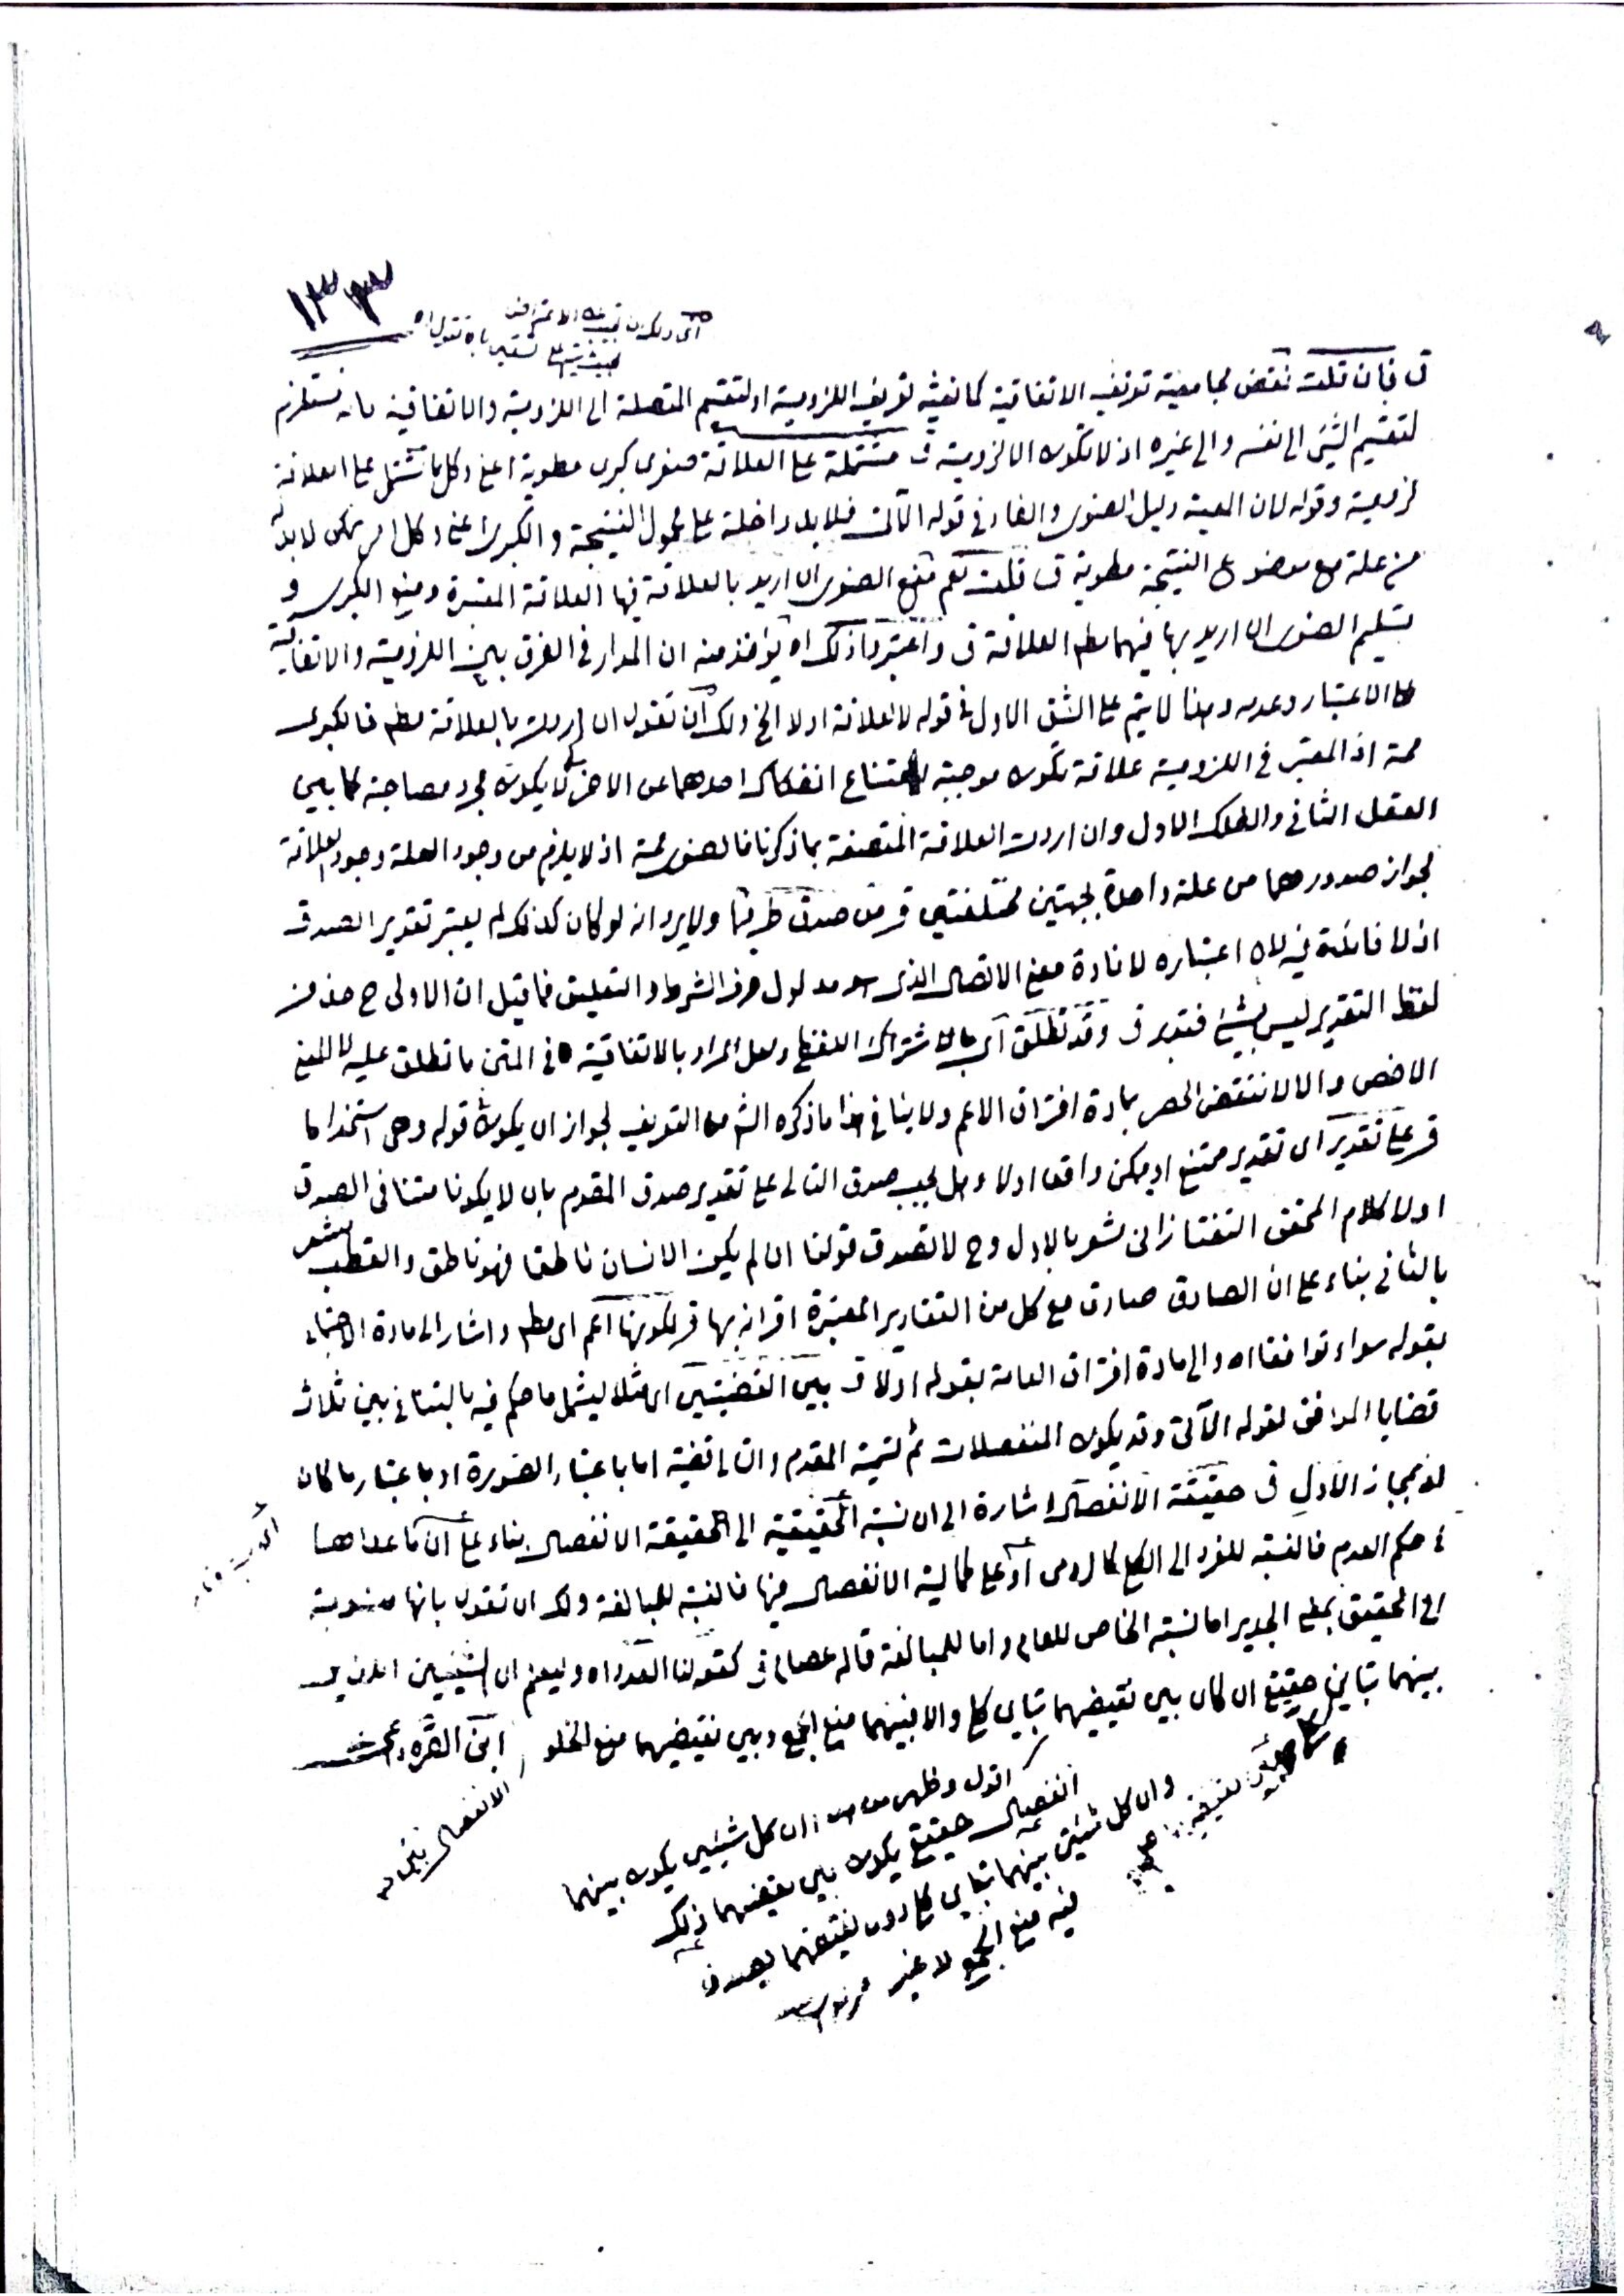 ١٣٣
ق فان قلت نقض لجامعية تعريف الاتفاقية كمانعية تعريف اللزومية او لتقسيم المتصلة الى اللزومية والاتفاقية بانه مستلزم
لتقسيم الشيئ الى نفسه والى غيره اذ لا تكون الا لزومية ق مشتملة على العلاقة صغرى كبرى مطوية اعنى وكل ما تشتمل على العلاقة
لزومية وقوله لان المعية دليل الصغرى والفاء فى قوله الآتى فلا بد داخلة على محمول النتيجة والكبرى اعنى وكل امر ممكن لا بد له
من علة مع موضوع النتيجة مطوية ق قلت نعم منع الصغرى ان اريد بالعلاقة فيها العلاقة المعتبرة ومنع الكبرى و
تسليم الصغرى ان اريد بها فيهما مطلق العلاقة ق واعتبروا ذلك اه يؤخذ منه ان المدار فى الفرق بين اللزومية والاتفاقية
على الاعتبار وعدمه وهذا لا يتم على الشق الاول فى قوله لا لعلاقة اولا الخ ولك ان تقول ان اردت بالعلاقة مطلق فالكبرى
ممة اذ المعتبر فى اللزومية علاقة تكون موجبة لامتناع انفكاك احدهما عن الآخر لا يكون مجرد مصاحبة كما بين
العقل الثانى والفلك الاول وان اردت العلاقة المتصفة بما ذكرنا فالصغرى ممة اذ لا يلزم من وجود العلة وجود العلاقة
لجواز صدورهما من علة واحدة بجهتين مختلفتين ق من صدق طرفيها ولا يرد انه لو كان كذلك لم يعتبر تقدير الصدق
اذ لا فائدة فيه لان اعتباره لافادة معنى الاتصال الذى هو مدلول حرف الشرط والتعليق فما قيل ان الاولى ح حذف
لفظ التقدير ليس بشيئ فتدبر ق وقد تطلق اى بالاشتراك اللفظى ولعل المراد بالاتفاقية فى المتن ما تطلق عليه بالمعنى
الاخص والا لانتقض الحصر بمادة افتراق الاعم ولا ينافى هذا ما ذكره الش من التعريف لجواز ان يكون قوله وهى استخداما
ق على تقدير اى تقدير ممتنع او ممكن واقعا اولا وهل يجب صدق التالى على تقدير صدق المقدم بان لا يكونا متنافى الصدق
اولا كلام المحقق التفتازانى يشعر بالاول وح لا تصدق قولنا ان لم يكن الانسان ناطقا فهو ناطق والقطب يشعر
بالثانى بناء على ان الصادق صادق مع كل من التقادير المعتبرة اقترانه بها ق لكونها اعم اى مطلقا واشار الى مادة الاجتماع
بقوله سواء توافقا اه والى مادة افتراق العامة بقوله اولا ق بين القضيتين اى مثلا ليشمل ما حكم فيه بالتنافى بين ثلاث
قضايا الموافق لقوله الآتى وقد يكون المنفصلات ثم تسمية المقدم والتالى قضية اما باعتبار الصورة او باعتبار ما كان
او بمجاز الاول ق حقيقة الانفصال اشارة الى ان نسبة الحقيقية الى الحقيقة الانفصال بناء على ان ما عداها
فى حكم العدم فالنسبة للفرد الى الكلى كالرومى او على كمالية الانفصال فيها فالنسبة للمبالغة ولك ان تقول بانها منسوبة
الى الحقيق بمعنى الجدير اما نسبة الخاص للعام واما للمبالغة قاله عصام ق كقولنا العدد اه وليعلم ان الشيئين الذين
بينهما تباين حقيقى ان كان بين نقيضيهما تباين كلى والا فبينهما منع الجمع وبين نقيضيهما منع الخلو ابن القره داغى
اقول وظهر من هذا ان كل شيئين يكون بينهما
انفصال حقيقى يكون بين نقيضيهما ذلك
وان كل شيئين بينهما تباين كلى دون نقيضيهما يصدق
فيه منع الجمع لا غير